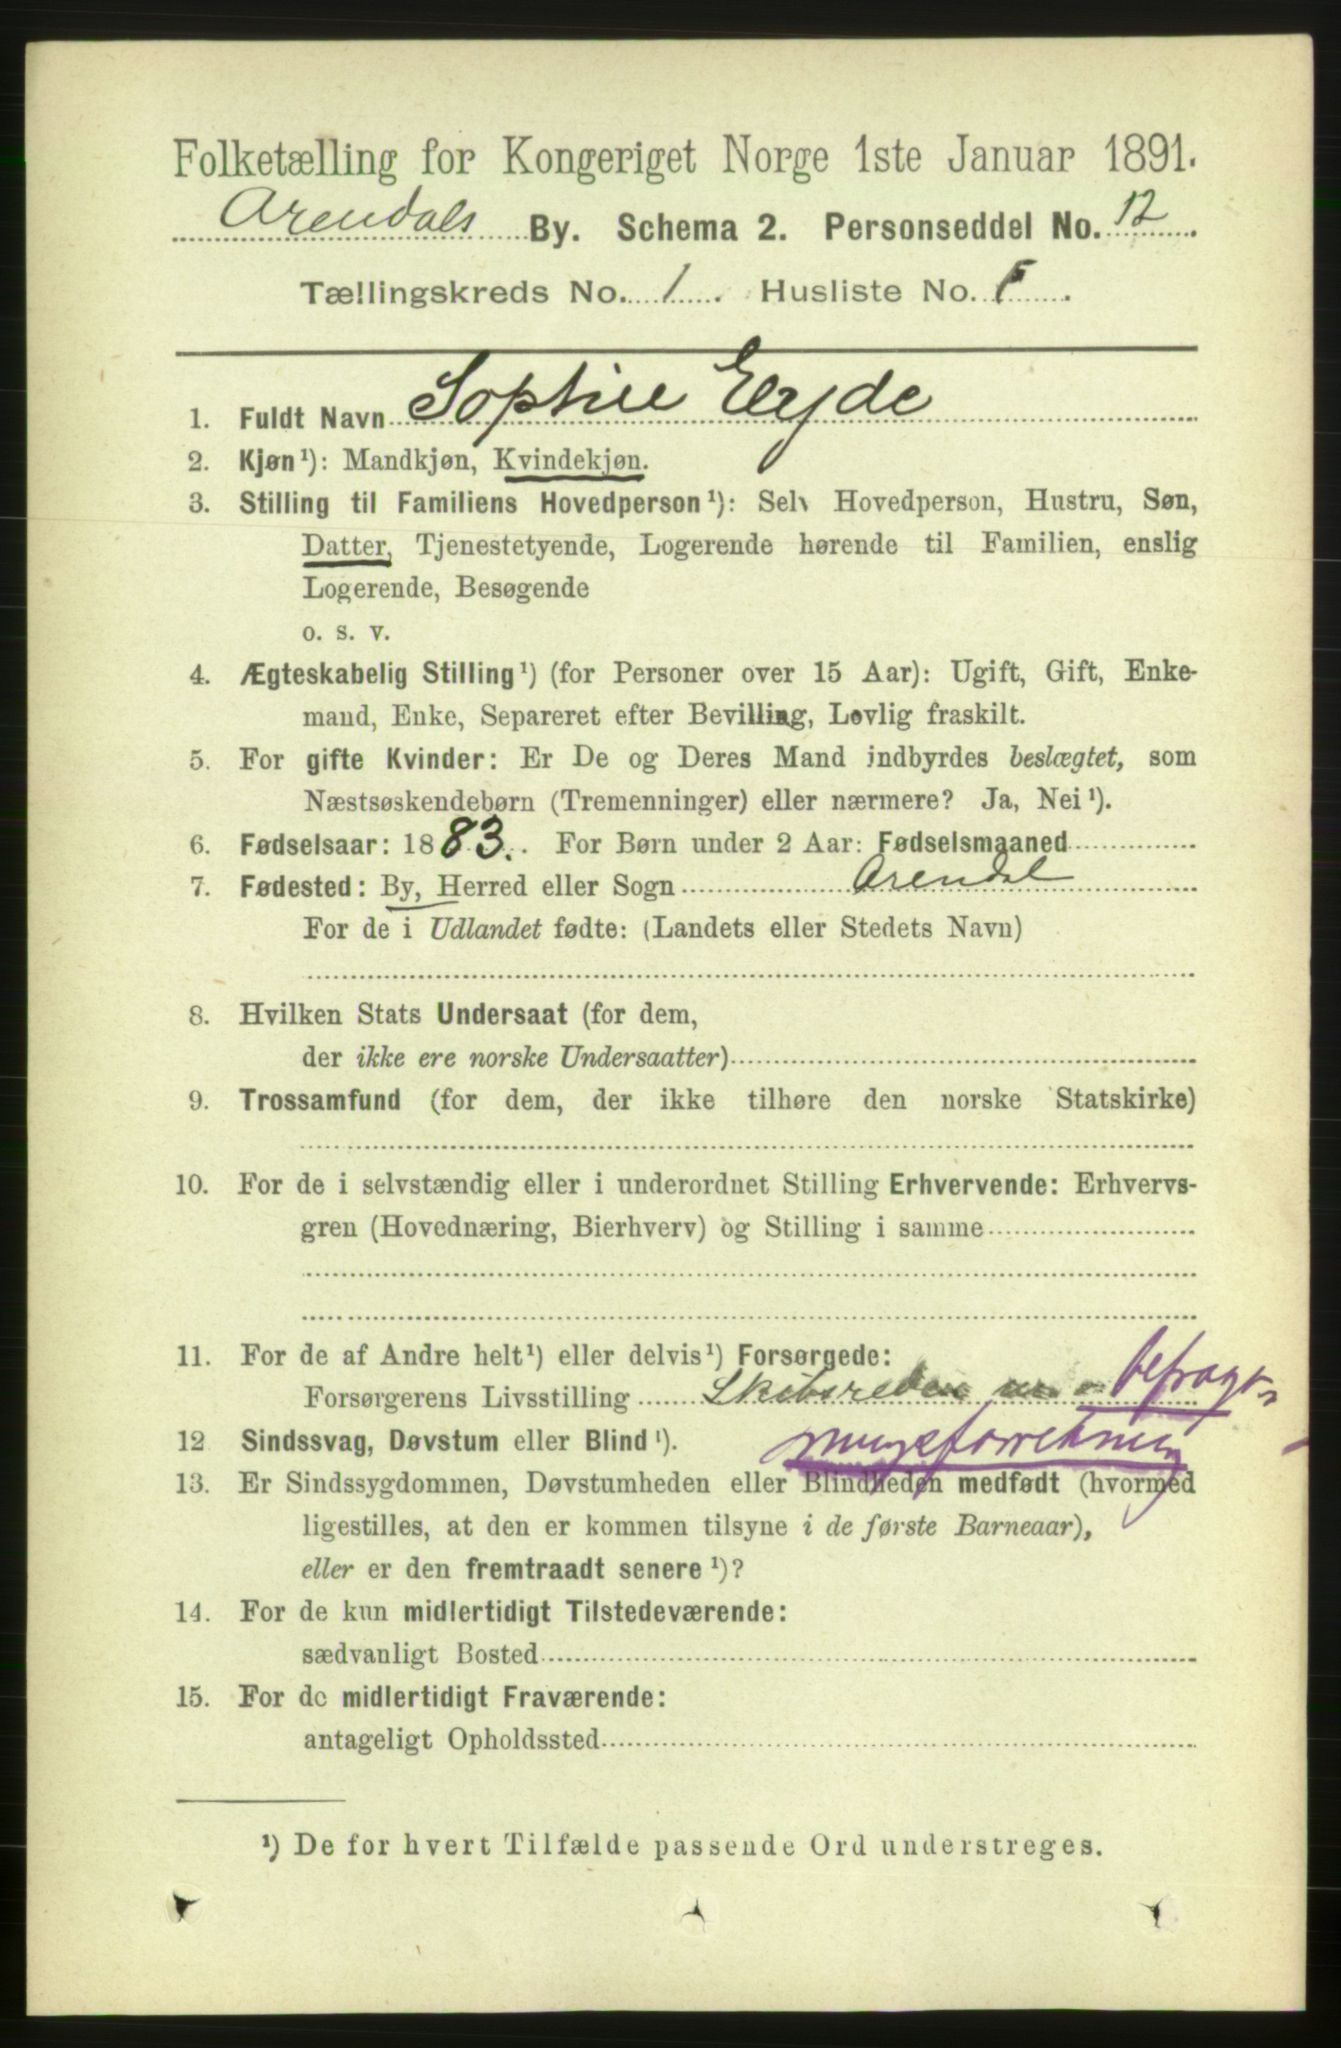 Folketælling for Kongeriget Norge 1ste Januar 1891.
Arendals By. Schema 2. Personseddel No. 12
Tællingskreds No. 1. Husliste No.
1. Fuldt Navn Sophie Eyde
2. Kjøn¹): Mandkjøn, Kvindekjøn.
3. Stilling til Familiens Hovedperson¹): Selv Hovedperson, Hustru, Søn,
Datter, Tjenestetyende, Logerende hørende til Familien, enslig
Logerende, Besøgende
o. s. v.
4. Ægteskabelig Stilling¹) (for Personer over 15 Aar): Ugift, Gift, Enke-
mand, Enke, Separeret efter Bevilling, Lovlig fraskilt.
5. For gifte Kvinder: Er De og Deres Mand indbyrdes beslægtet, som
Næstsøskendebørn (Tremenninger) eller nærmere? Ja, Nei¹).
6. Fødselsaar: 1883. For Børn under 2 Aar: Fødselsmaaned
7. Fødested: By, Herred eller Sogn Arendal
For de i Udlandet fødte: (Landets eller Stedets Navn)
8. Hvilken Stats Undersaat (for dem,
der ikke ere norske Undersaatter)
9. Trossamfund (for dem, der ikke tilhøre den norske Statskirke)
10. For de i selvstændig eller i underordnet Stilling Erhvervende: Erhvervs-
gren (Hovednæring, Bierhverv) og Stilling i samme
11. For de af Andre helt¹) eller delvis¹) Forsørgede:
Forsørgerens Livsstilling Skibsreder befragt-
ningsforretning
12 Sindssvag, Døvstum eller Blind¹).
13. Er Sindssygdommen, Døvstumheden eller Blindheden medfødt (hvormed
ligestilles, at den er kommen tilsyne i de første Barneaar),
eller er den fremtraadt senere¹)?
14. For de kun midlertidigt Tilstedeværende:
sædvanligt Bosted
15. For de midlertidigt Fraværende:
antageligt Opholdssted
¹) De for hvert Tilfælde passende Ord understreges.